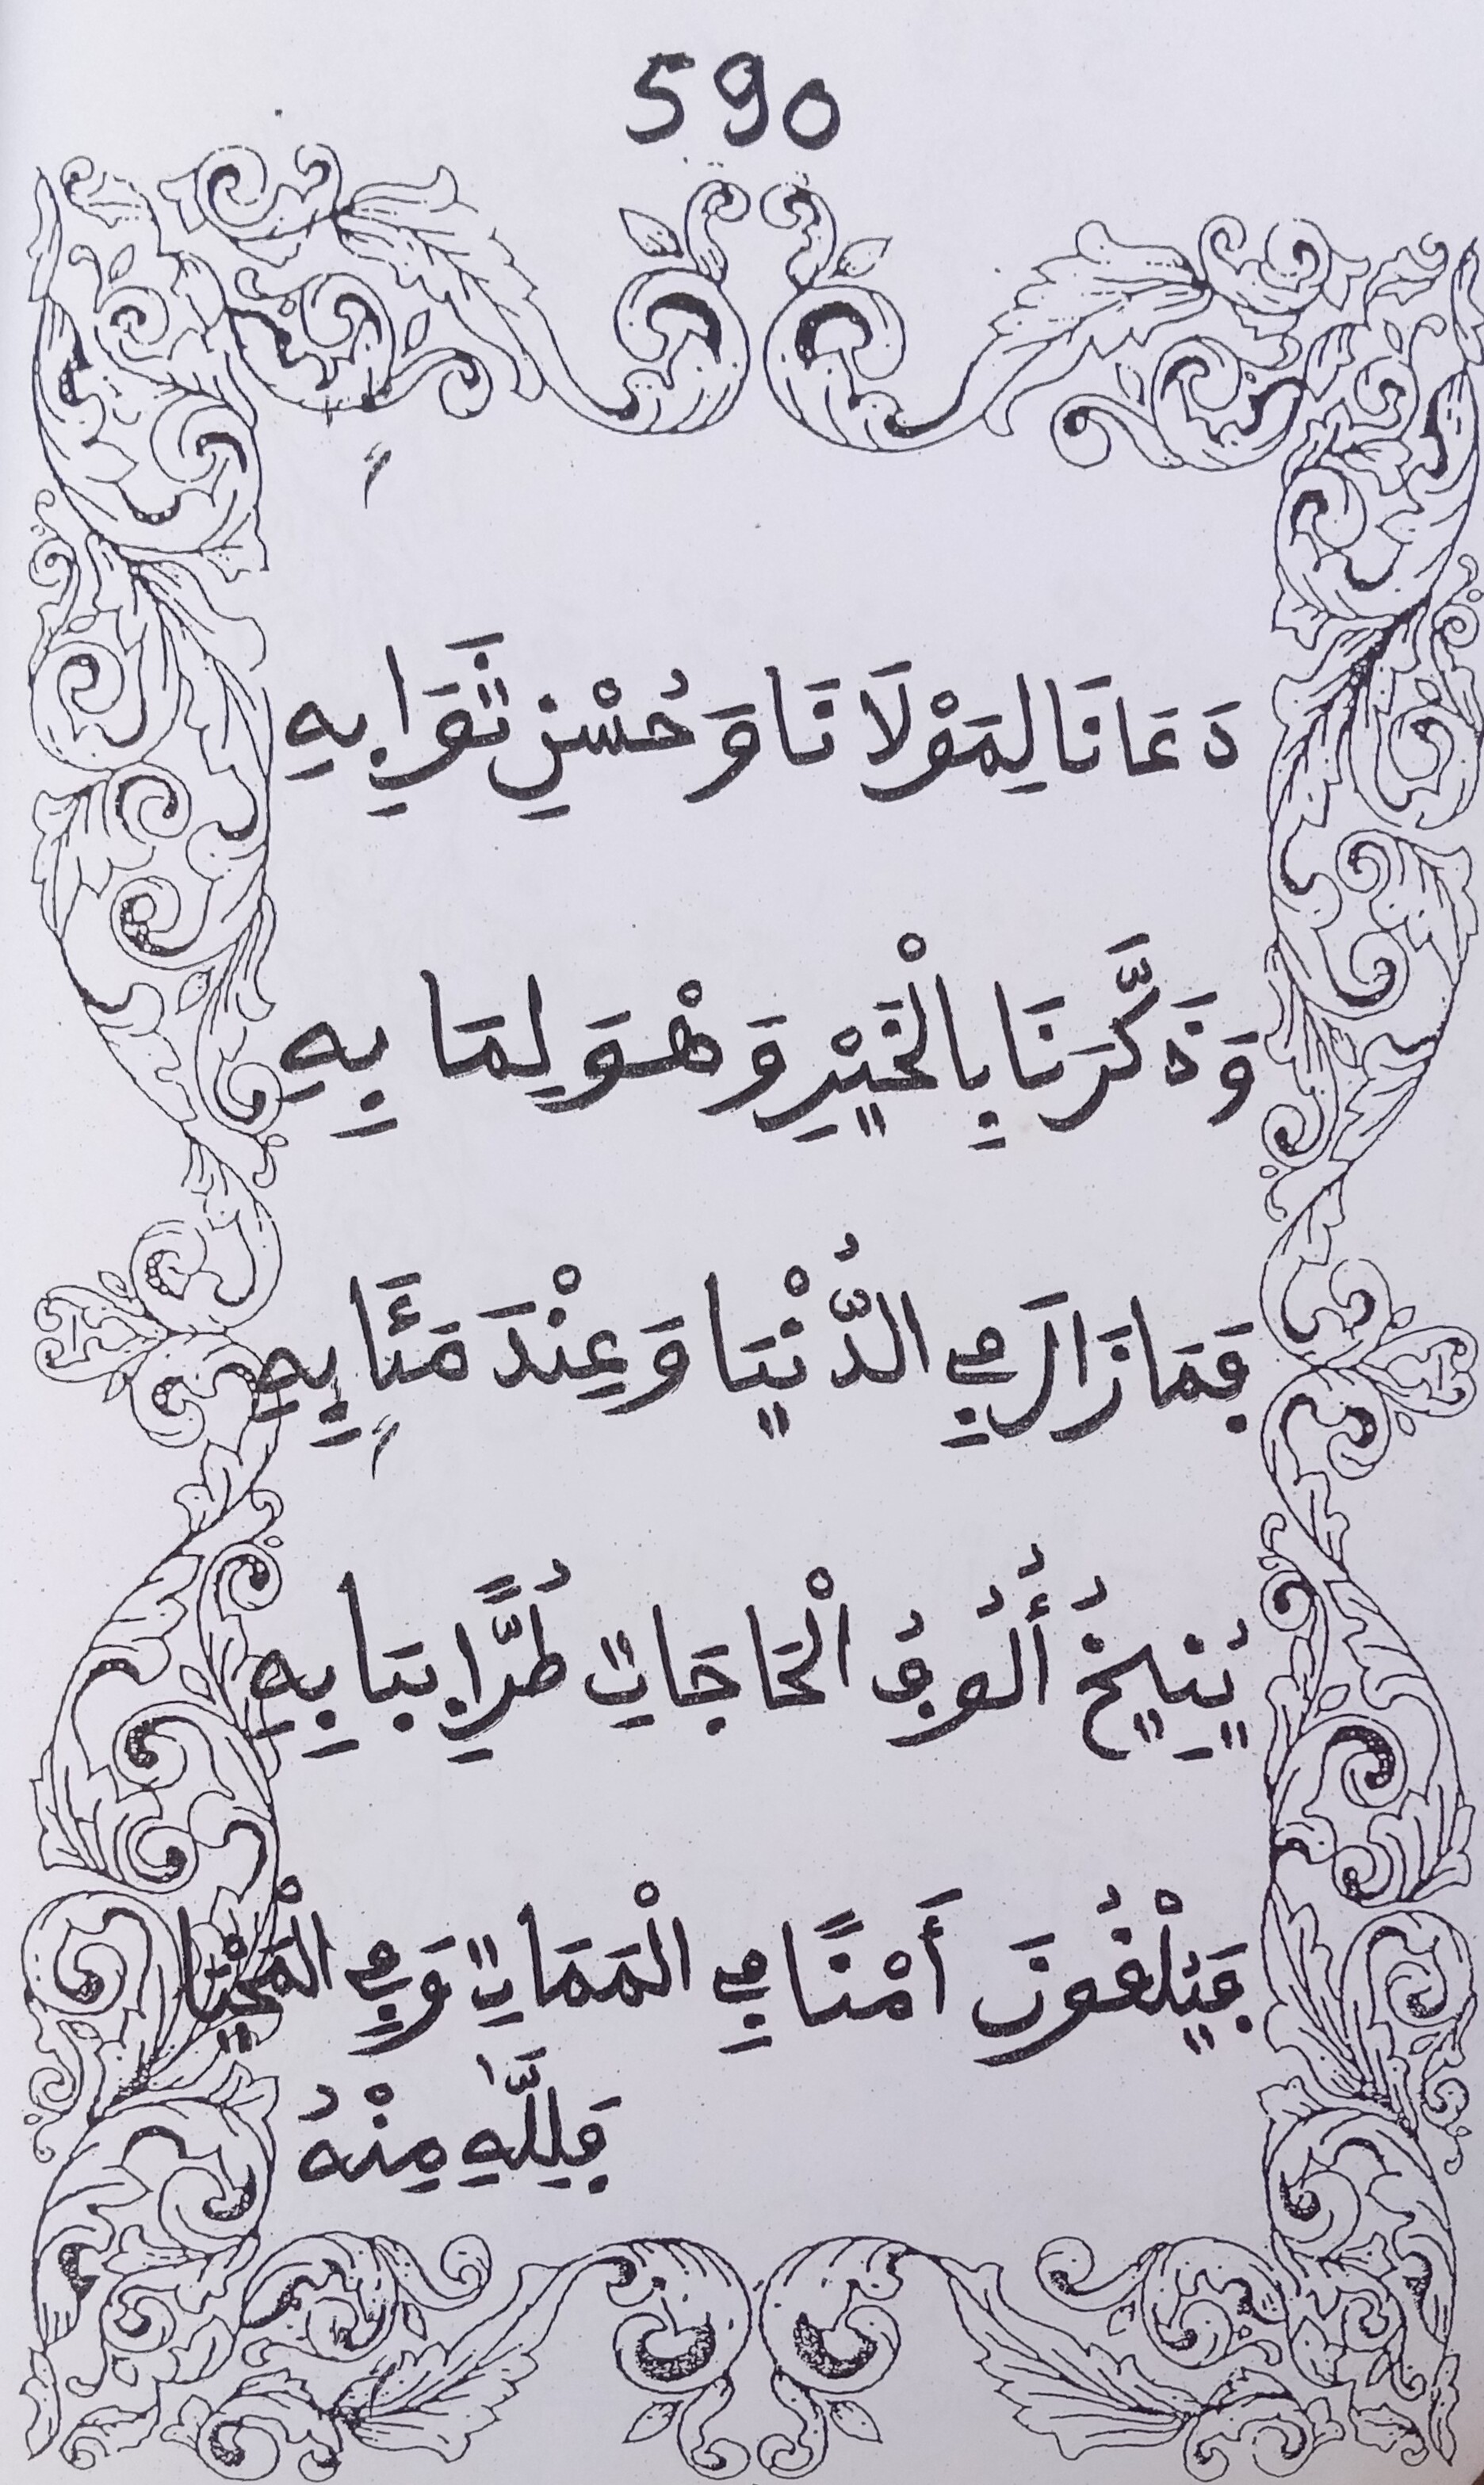 590
دَعَانَا لِمَوْلَانَا وَحُسْنِ ثَوَابِهِ
وَذَكَّرَنَا بِالْخَيْرِ وَهْوَ لِمَا بِهِ
ڢَمَا زَالَ ڢِي الدُّنْيَا وَعِنْدَ مَئَابِهِ
يُنِيخُ أُلُوڢُ الْحَاجَاتِ طُرًّا بِبَابِهِ
ڢَيَلْڧَوْنَ أَمْنًا ڢِي الْمَمَاتِ وَڢِي الْمَحْيَا
ڢَلِلَّهِ مِنْهُ